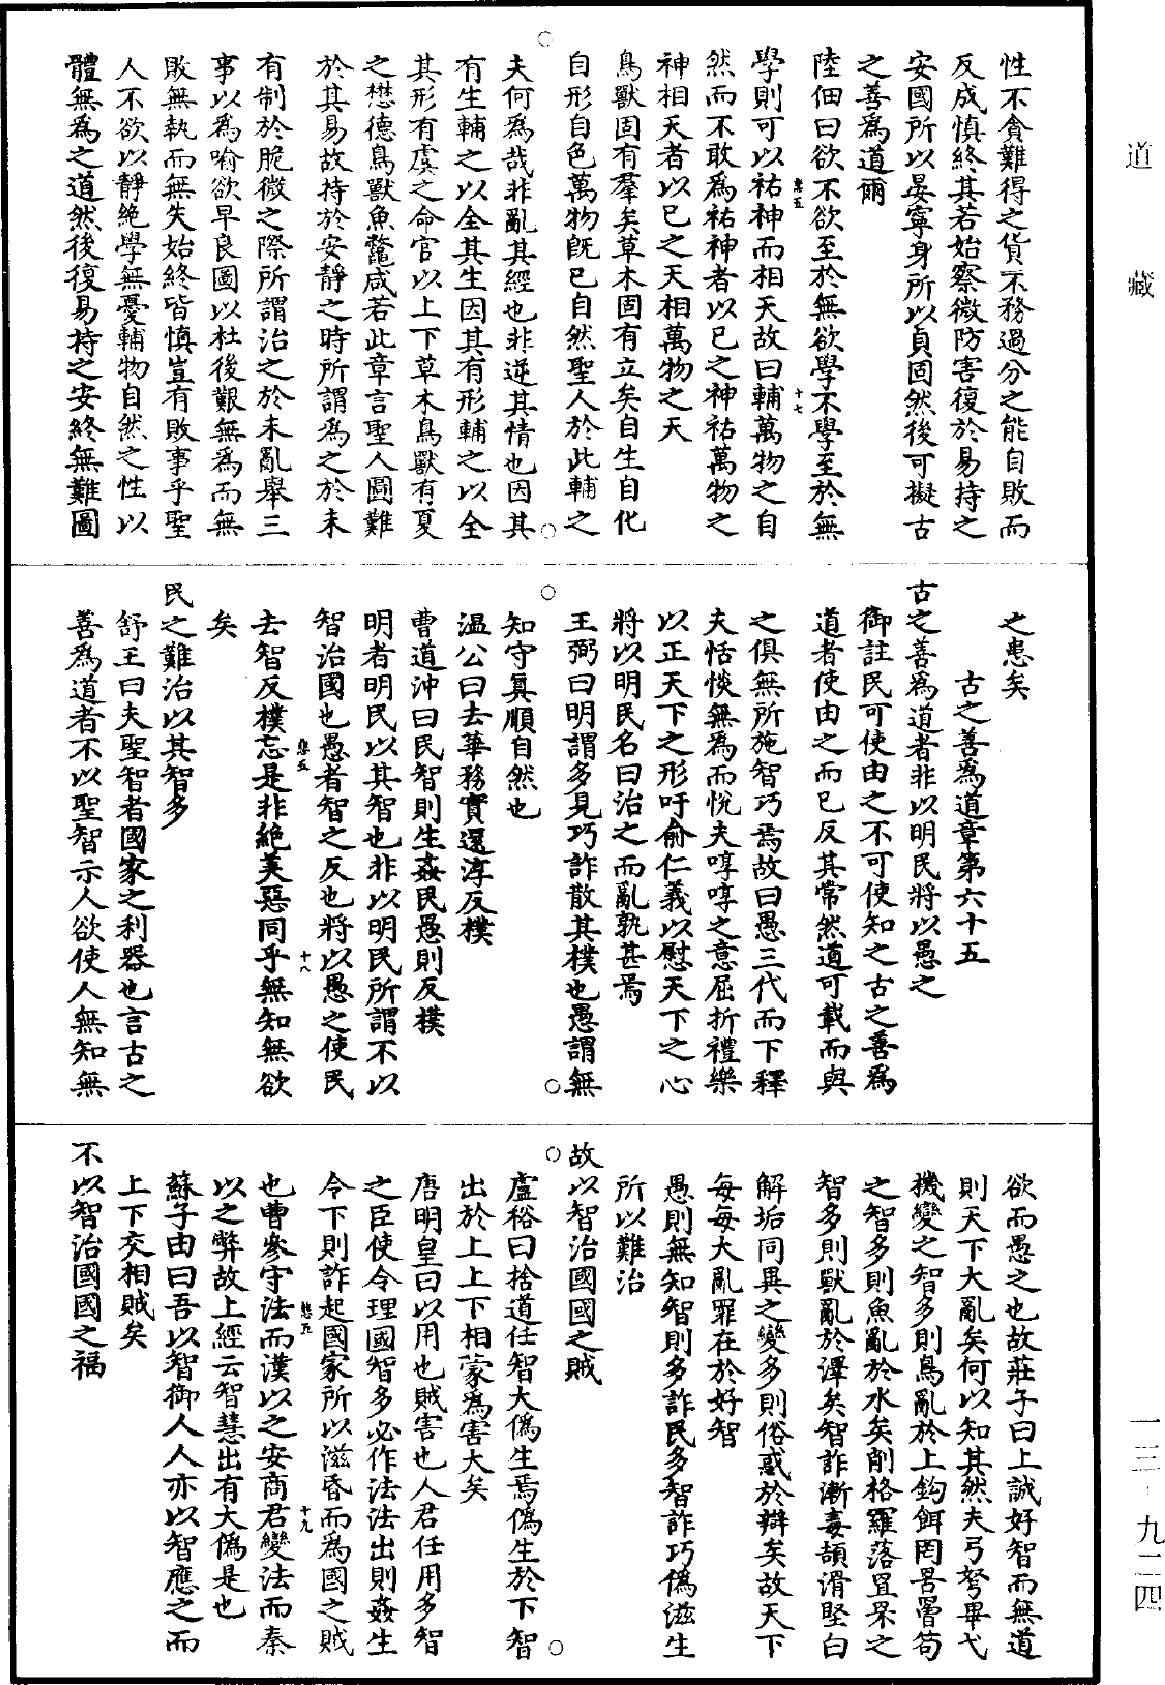 道藏
性不貪難得之貨不務過分之能自敗而
反成慎終其若始察微防害復於易持之
安國所以晏寧身所以貞固然後可擬古
之善為道爾
陸佃曰欲不欲至於無欲學不學至於無
學則可以祐神而相天故曰輔萬物之自
然而不敢為祐神者以已之神祐萬物之
神相天者以已之天相萬物之天
鳥獸固有羣矣草木固有立矣自生自化
自形自色萬物旣已自然聖人於此輔之
夫何為哉非亂其經也非逆其情也因其
有生輔之以全其生因其有形輔之以全
其形有虞之命官以上下草木鳥獸有夏
之懋德鳥獸魚鼈咸若此章言聖人圖難
於其易故持於安靜之時所謂為之於未
有制於脆微之際所謂治之於未亂舉三
事以為喻欲早良圖以杜後艱無為而無
敗無執而無失始終皆慎豈有敗事乎聖
人不欲以靜絶學無憂輔物自然之性以
體無為之道然後復易持之安終無難圖
之患矣
古之善為道章第六十五
古之善為道者非以明民將以愚之
御註民可使由之不可使知之古之善為
道者使由之而已反其常然道可載而與
之俱無所施智巧焉故曰愚三代而下釋
夫恬惔無為而悅夫啍啍之意屈折禮樂
以正天下之形吁俞仁義以慰天下之心
將以明民名曰治之而亂孰甚焉
王弼曰明謂多見巧詐散其樸也愚謂無
知守眞順自然也
温公曰去華務實還淳反樸
曹道沖曰民智則生姦民愚則反樸
明者明民以其智也非以明民所謂不以
智治國也愚者智之反也將以愚之使民
去智反樸忘是非絶美惡同乎無知無欲
矣
民之難治以其智多
舒王曰夫聖智者國家之利器也言古之
善為道者不以聖智示人欲使人無知無
欲而愚之也故莊子曰上誠好智而無道
則天下大亂矣何以知其然夫弓弩畢弋
機變之智多則鳥亂於上鈎餌罔罟罾笱
之智多則魚亂於水矣削格羅落罝罘之
智多則獸亂於澤矣智詐漸毒頡滑堅白
解垢同異之變多則俗惑於辯矣故天下
每每大亂罪在於好智
愚則無知智則多詐民多智詐巧偽滋生
所以難治
故以智治國國之賊
盧裕曰捨道任智大僞生焉僞生於下智
出於上上下相蒙為害大矣
唐明皇曰以用也賊害也人君任用多智
之臣使令理國智多必作法法出則姦生
令下則詐起國家所以滋昏而為國之賊
也曹參守法而漢以之安商君變法而秦
以之弊故上經云智慧出有大僞是也
蘇子由曰吾以智御人人亦以智應之而
上下交相賊矣
不以智治國國之福
十七
十八
十九
一三·九二四